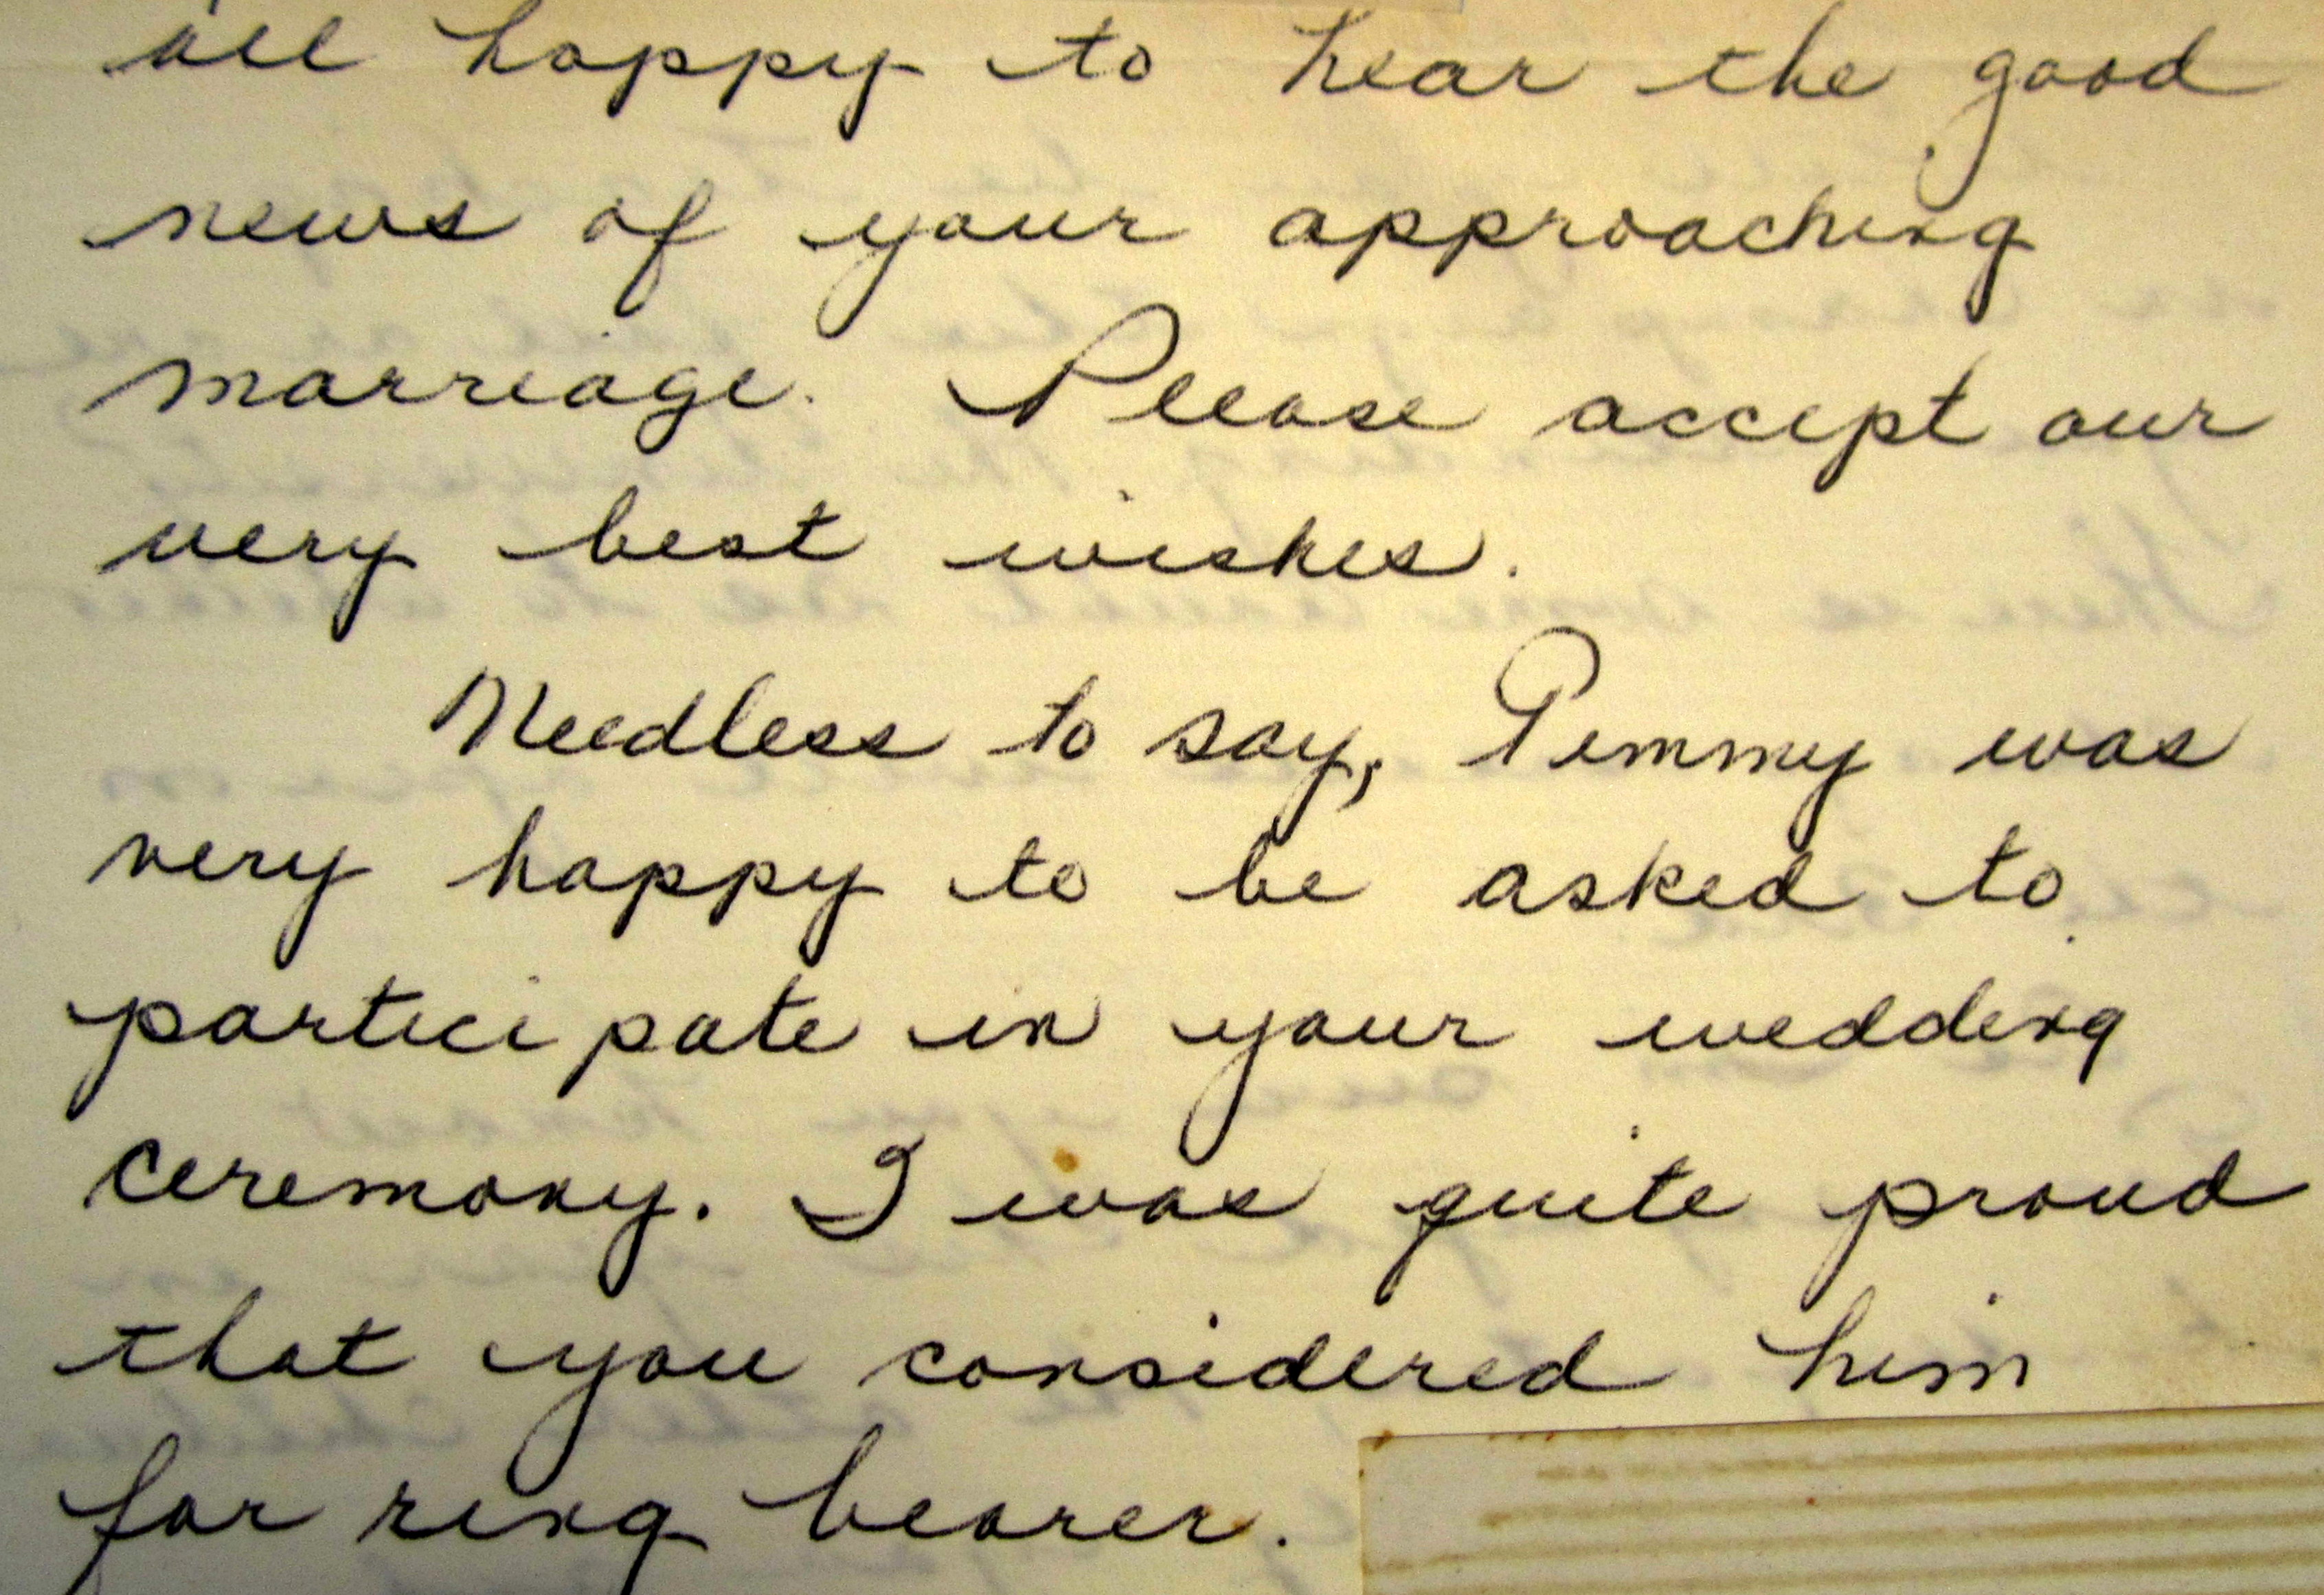 all happy to hear the good
news of your approaching
marriage. Please accept our
very best wishes.
Needless to say, Pimmy was
very happy to be asked to
participate in your wedding
ceremony. I was quite proud
that you considered him
for ring bearer.